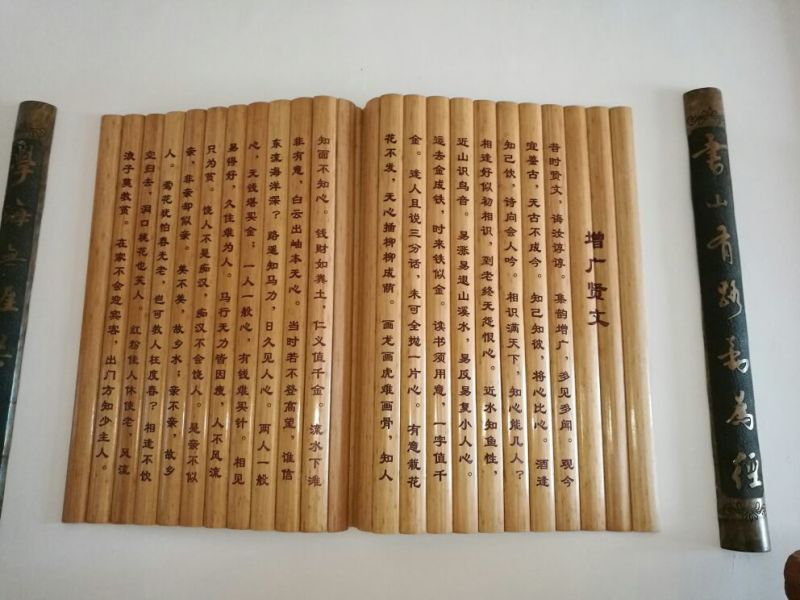 書山有路勤為徑
增广贤文
昔时贤文，诲汝谆谆。集韵增广，多见多闻。观今
宜鉴古，无古不成今。知己知彼，将心比心。酒逢
知己饮，诗向会人吟。相识满天下，知心能几人？
相逢好似初相识，到老终无怨恨心。近水知鱼性，
近山识鸟音。易涨易退山溪水，易反易复小人心。
运去金成铁，时来铁似金。读书须用意，一字值千
金。逢人且说三分话，未可全抛一片心。有意栽花
花不发，无心插柳柳成荫。画龙画虎难画骨，知人
知面不知心。钱财如粪土，仁义值千金。流水下滩
非有意，白云出岫本无心。当时若不登高望，谁信
东流海洋深？路遥知马力，日久见人心。两人一般
心，无钱堪买金；一人一般心，有钱难买针。相见
易得好，久住难为人。马行无力皆因瘦，人不风流
只为贫。饶人不是痴汉，痴汉不会饶人。是亲不似
亲，非亲却似亲。美不美，故乡水；亲不亲，故乡
人。莺花犹怕春光老，岂可教人枉度春？相逢不饮
空归去，洞口桃花也笑人。红粉佳人休使老，风流
浪子莫教贫。在家不会迎宾客，出门方知少主人。
學海無涯